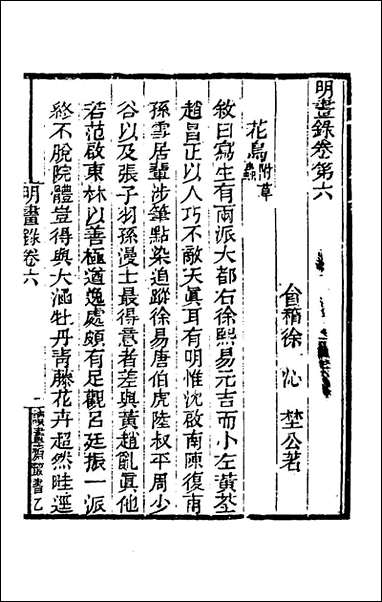 明畫錄卷第六
會稽徐沁埜公著
花鳥附草蟲
敘曰寫生有兩派大都右徐熙易元吉而小左黃筌
趙昌正以人巧不敵天眞耳有明惟沈啟南陳復甫
孫雪居輩涉筆點染追蹤徐易唐伯虎陸叔平周少
谷以及張子羽孫漫士最得意者差與黃趙亂眞他
若范啟東林以善極遒逸處頗有足觀呂廷振一派
終不脫院體豈得與大涵牡丹靑藤花卉超然畦逕
明畫錄卷六
一
讀畫齋叢書乙